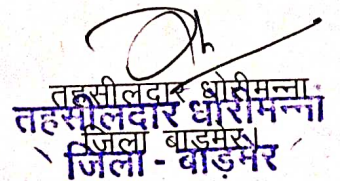 तहसीलदार धोरीमन्ना
तहसीलदार धोरीमन्ना
जिला बाडमेर
जिला - बाड़मेर